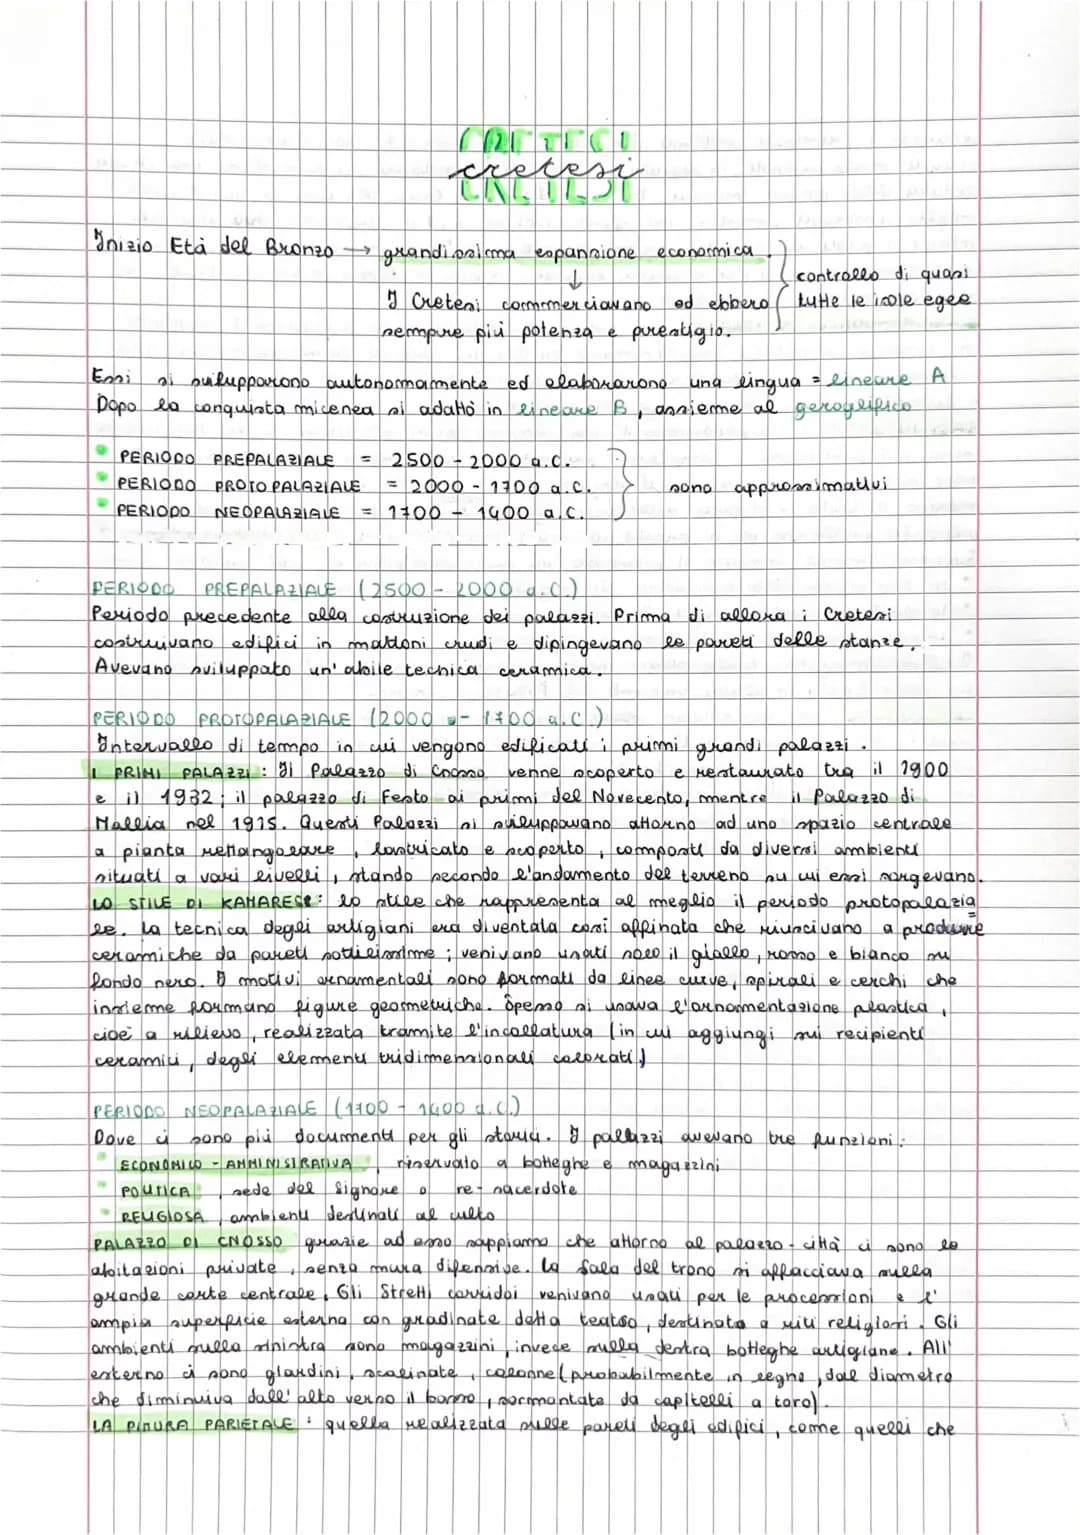 CRETESI
cretesi
CRETESI
Inizio Età del Bronzo → grandissima espansione economica.
↓
controllo di quasi
I Cretesi commerciavano ed ebbero
tutte le isole egee
sempre più potenza e prestigio.
Essi si svilupparono autonomamente ed elaborarono una lingua = lineare A
Dopo la conquista micenea si adattò in lineare B, assieme al geroglifico
• PERIODO PREPALAZIALE = 2500 - 2000 a.C.
• PERIODO PROTOPALAZIALE = 2000 - 1700 a.C.
sono approssimativi
• PERIODO NEOPALAZIALE = 1700 - 1400 a.C.
PERIODO PREPALAZIALE (2500 - 2000 a.C.)
Periodo precedente alla costruzione dei palazzi. Prima di allora i Cretesi
costruivano edifici in mattoni crudi e dipingevano le pareti delle stanze.
Avevano sviluppato un'abile tecnica ceramica.
PERIODO PROTOPALAZIALE (2000 - 1700 a.C.)
Intervallo di tempo in cui vengono edificati i primi grandi palazzi.
I PRIMI PALAZZI: Il Palazzo di Cnosso venne scoperto e restaurato tra il 1900
e il 1932; il palazzo di Festo ai primi del Novecento, mentre il Palazzo di
Mallia nel 1915. Questi Palazzi si sviluppavano attorno ad uno spazio centrale
a pianta rettangolare, lastricato e scoperto, composti da diversi ambienti
situati a vari livelli, stando secondo l'andamento del terreno su cui essi sorgevano.
LO STILE DI KAMARES: lo stile che rappresenta al meglio il periodo protopalazia
le. La tecnica degli artigiani era diventata così affinata che riuscivano a produrre
ceramiche da pareti sottilissime; venivano usati solo il giallo, rosso e bianco su
fondo nero. I motivi ornamentali sono formati da linee curve, spirali e cerchi che
insieme formano figure geometriche. Spesso si usava l'ornamentazione plastica,
cioè a rilievo, realizzata tramite l'incollatura (in cui aggiungi sui recipienti
ceramici, degli elementi tridimensionali colorati)
PERIODO NEOPALAZIALE (1700 - 1400 a.C.)
Dove ci sono più documenti per gli storici. I palazzi avevano tre funzioni:
• ECONOMICO - AMMINISTRATIVA, riservato a botteghe e magazzini
• POLITICA, sede del Signore o re-sacerdote
• RELIGIOSA, ambienti destinati al culto
PALAZZO DI CNOSSO grazie ad esso sappiamo che attorno al palazzo-città ci sono le
abitazioni private, senza mura difensive. La sala del trono si affacciava sulla
grande corte centrale. Gli Stretti corridoi venivano usati per le processioni e l'
ampia superficie esterna con gradinate detta teatro, destinata a riti religiosi. Gli
ambienti sulla sinistra sono magazzini, invece sulla destra botteghe artigiane. All'
esterno ci sono giardini, scalinate, colonne (probabilmente in legno, dal diametro
che diminuiva dall'alto verso il basso, sormontate da capitelli a toro).
LA PITTURA PARIETALE: quella realizzata sulle pareti degli edifici, come quelli che